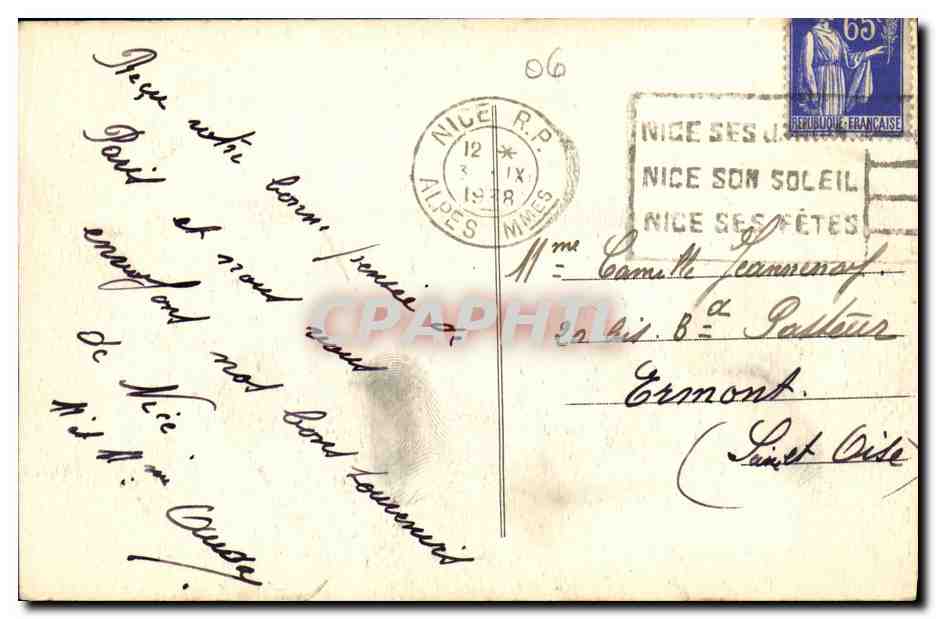 06
65
REPUBLIQUE-FRANCAISE
NICE R.P.
12 *
3 IX
1938
ALPES MMES
NICE SES
NICE SON SOLEIL
NICE SES FÊTES
Reçu votre bonne pensée de
Paris et nous vous
envoyons nos bons souvenirs
de Nice
Mr et Mme
Mme Camille Jeannenay
22 bis. Bd Pasteur
Ermont.
(Seine et Oise
CPAPHIL